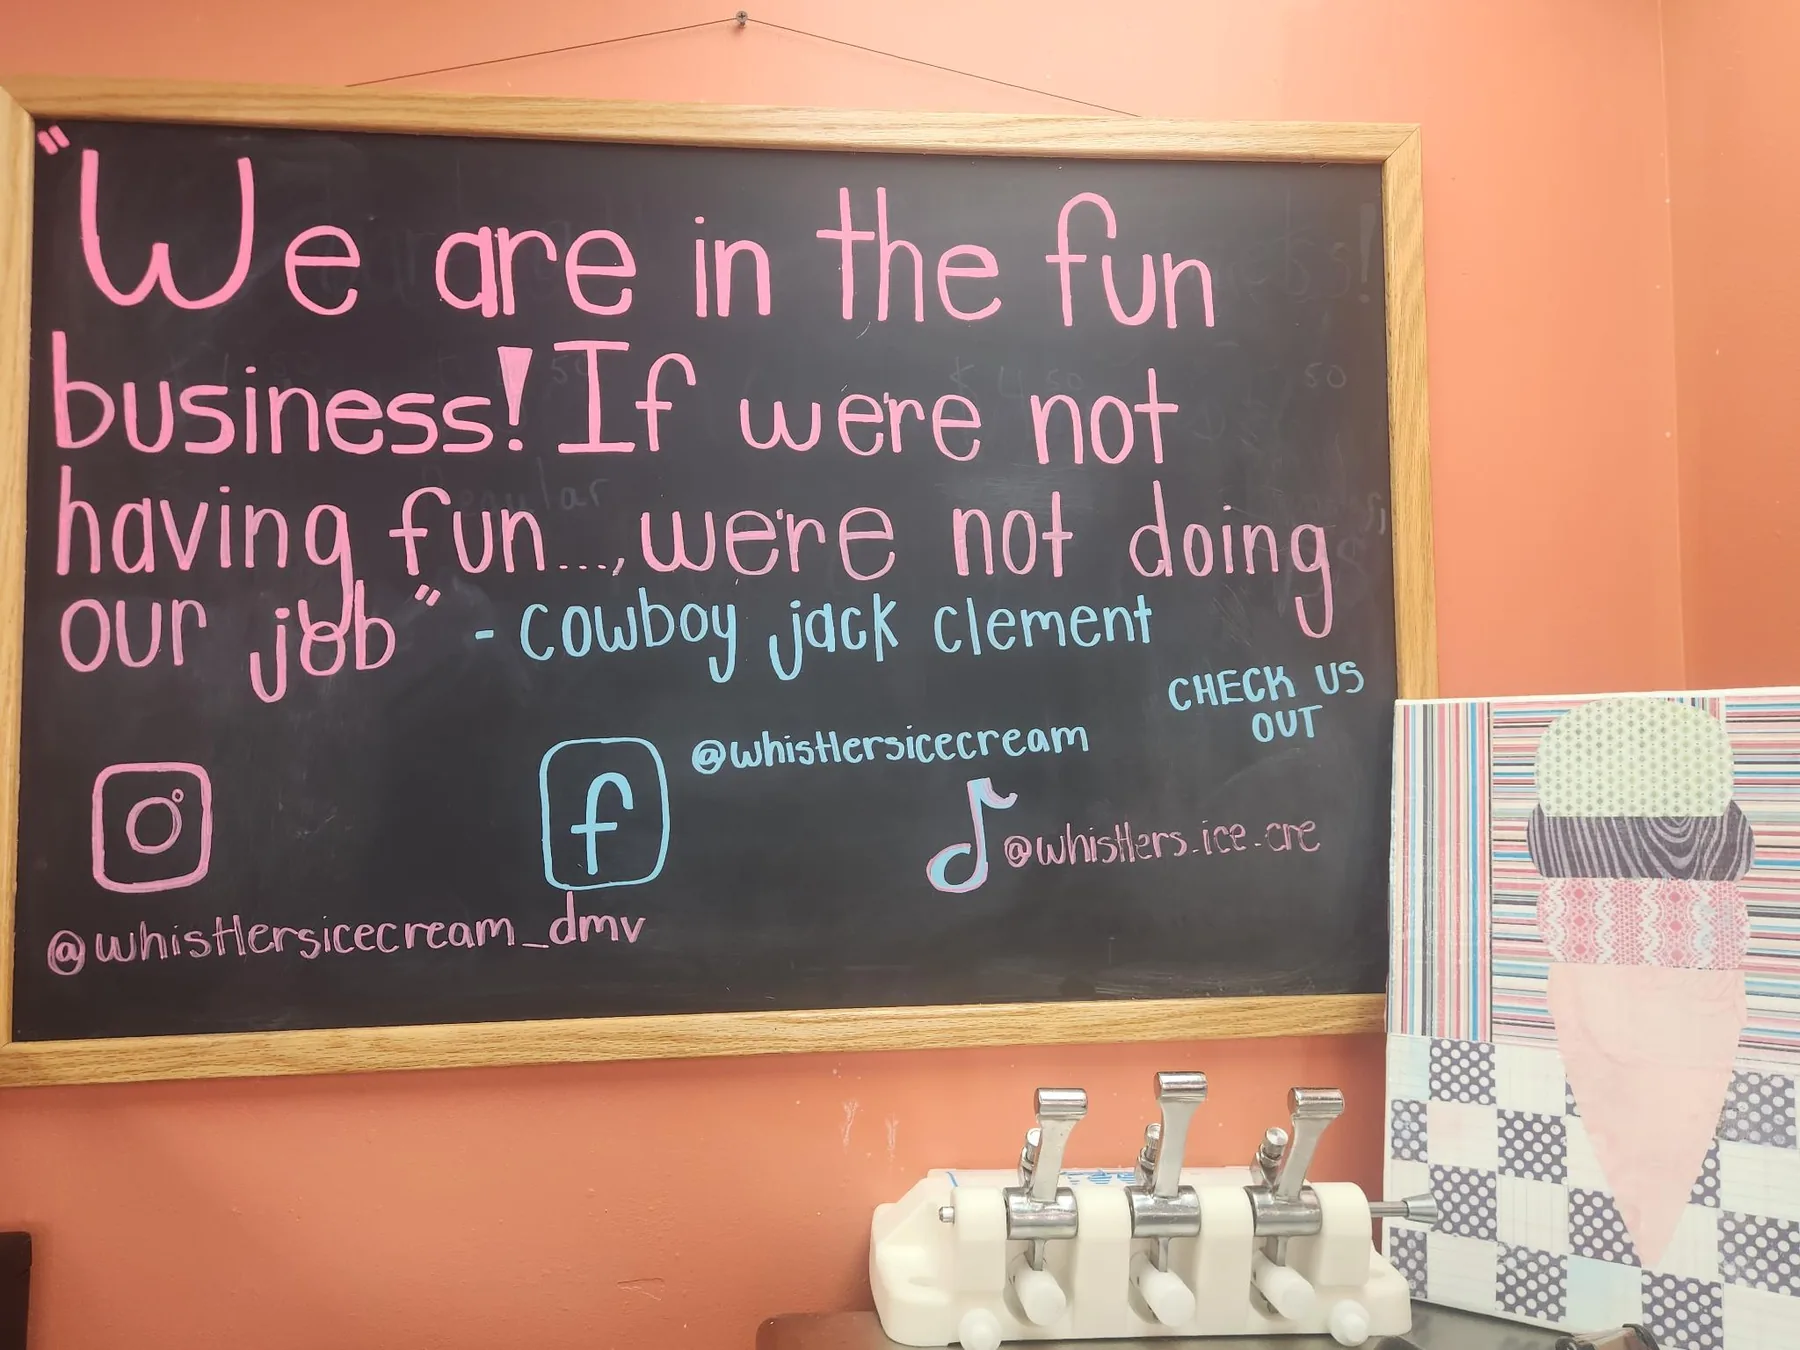 "We are in the fun
business! If we're not
having fun...,we're not doing
our job" - cowboy jack clement
CHECK US
OUT
@whistlersicecream
@whistlers.ice.cre
@whistlersicecream_dmv